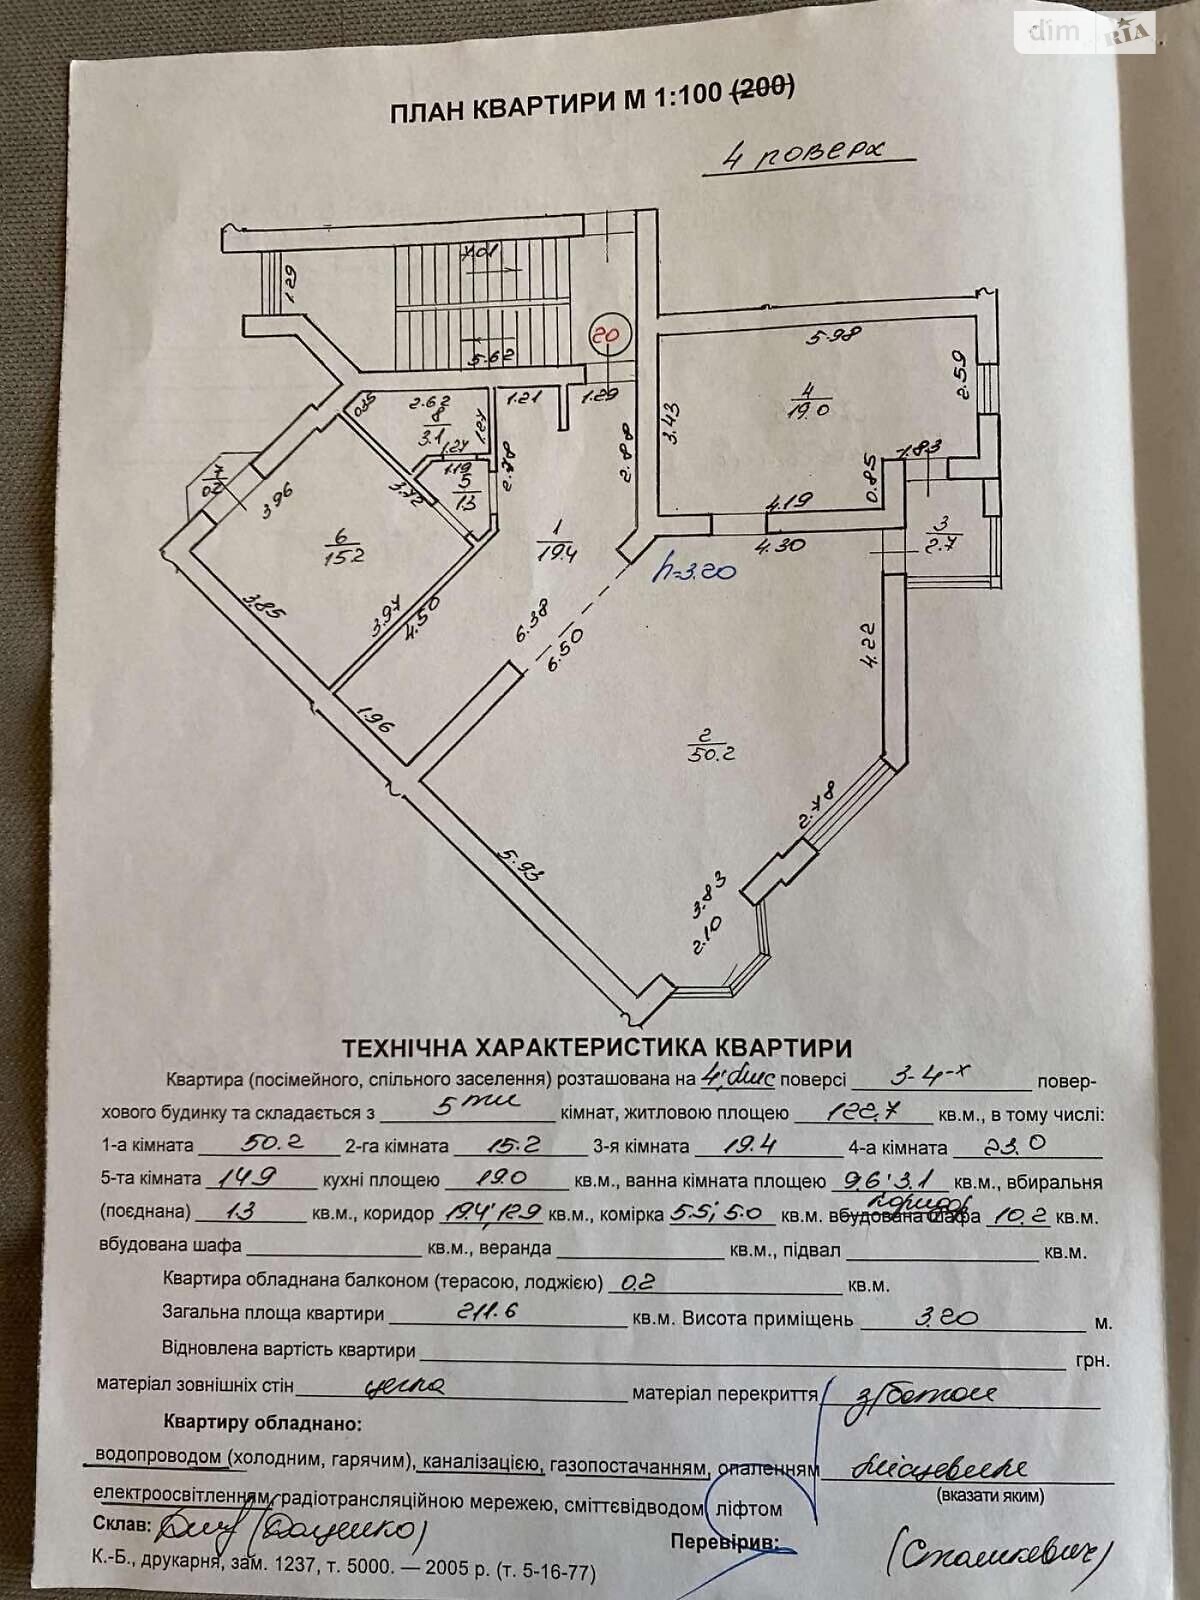 dim RIA
ПЛАН КВАРТИРИ М 1:100 (200)
4 поверх
7.01
1.29
5.62
20
5.98
2.59
4
19.0
3.43
2.62
0.85
8
3.1
1.27
1.21
1.29
2.88
1.27
1.19
2.78
5
1.3
1.83
0.85
7
0.2
3.96
3.72
4.19
4.30
3
2.7
6
15.2
1
19.4
h=3.20
3.85
3.97
4.50
6.38
6.50
4.22
1.96
2
50.2
2.78
5.93
3.83
2.10
ТЕХНІЧНА ХАРАКТЕРИСТИКА КВАРТИРИ
Квартира (посімейного, спільного заселення) розташована на 4; поверсі 3-4-х повер-
хового будинку та складається з 5ти кімнат, житловою площею 122,7 кв.м., в тому числі:
1-а кімната 50.2 2-га кімната 15.2 3-я кімната 19.4 4-а кімната 23.0
5-та кімната 14.9 кухні площею 19.0 кв.м., ванна кімната площею 9.6; 3.1 кв.м., вбиральня
(поєднана) 1.3 кв.м., коридор 19.4; 12.9 кв.м., комірка 5.5; 5.0 кв.м. вбудована шафа коридор 10.2 кв.м.
вбудована шафа кв.м., веранда кв.м., підвал кв.м.
Квартира обладнана балконом (терасою, лоджією) 0.2 кв.м.
Загальна площа квартири 211.6 кв.м. Висота приміщень 3.20 м.
Відновлена вартість квартири грн.
матеріал зовнішніх стін цегла матеріал перекриття з/бетон
Квартиру обладнано:
водопроводом (холодним, гарячим), каналізацією, газопостачанням, опаленням місцевим
(вказати яким)
електроосвітленням, радіотрансляційною мережею, сміттєвідводом, ліфтом
Склав: (Доценко)
Перевірив: (Сташкевич)
К.-Б., друкарня, зам. 1237, т. 5000. — 2005 р. (т. 5-16-77)